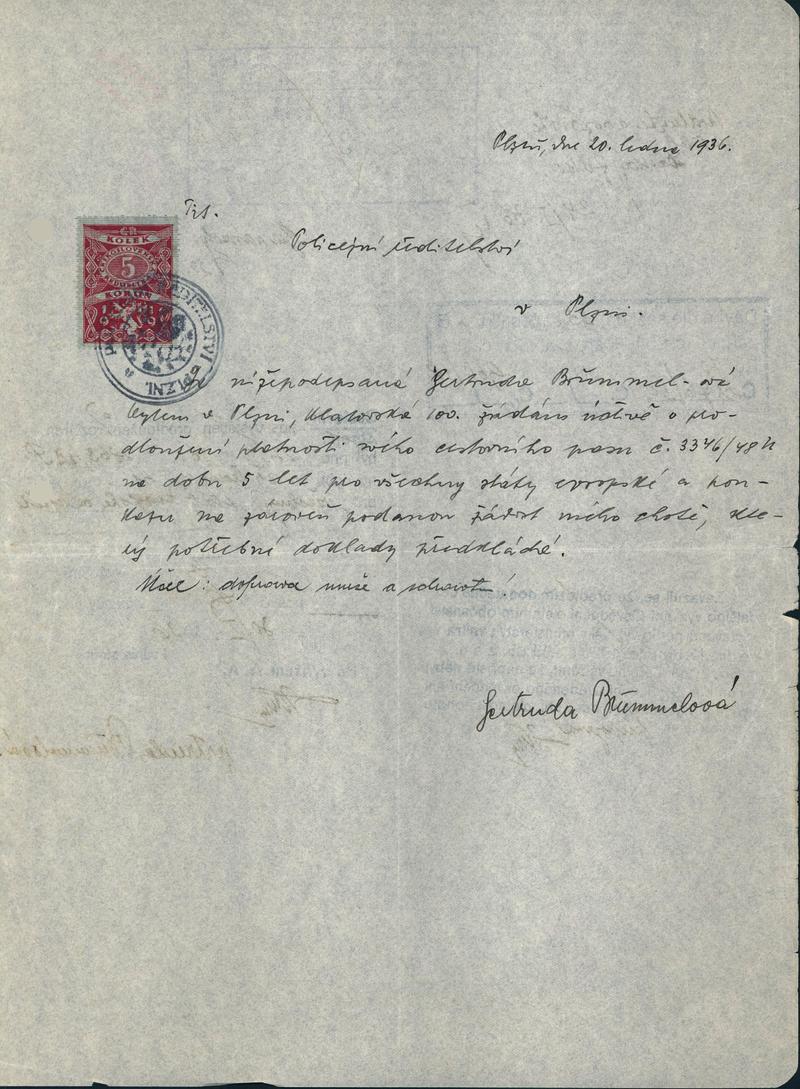 Plzeň, dne 20. ledna 1936.
Tit.
Policejní ředitelství
v Plzni.
KOLEK
5
KORUN
nížepodepsaná Gertruda Brümmel-ová
bytem v Plzni, Klatovská 100. žádám uctivě o pro-
dloužení platnosti svého cestovního pasu č. 3346/48
na dobu 5 let pro všechny státy evropské a pou-
kazuji na zároveň podanou žádost mého chotě, kte-
rý potřebné doklady předkládá.
Účel: doprava muže a zdravotní.
Gertruda Brümmelová